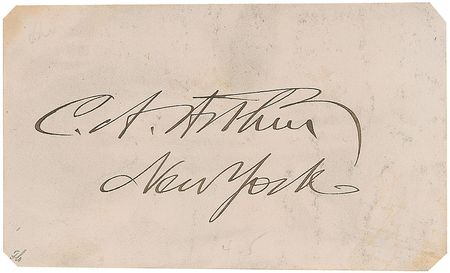 C. A. Arthur
New York